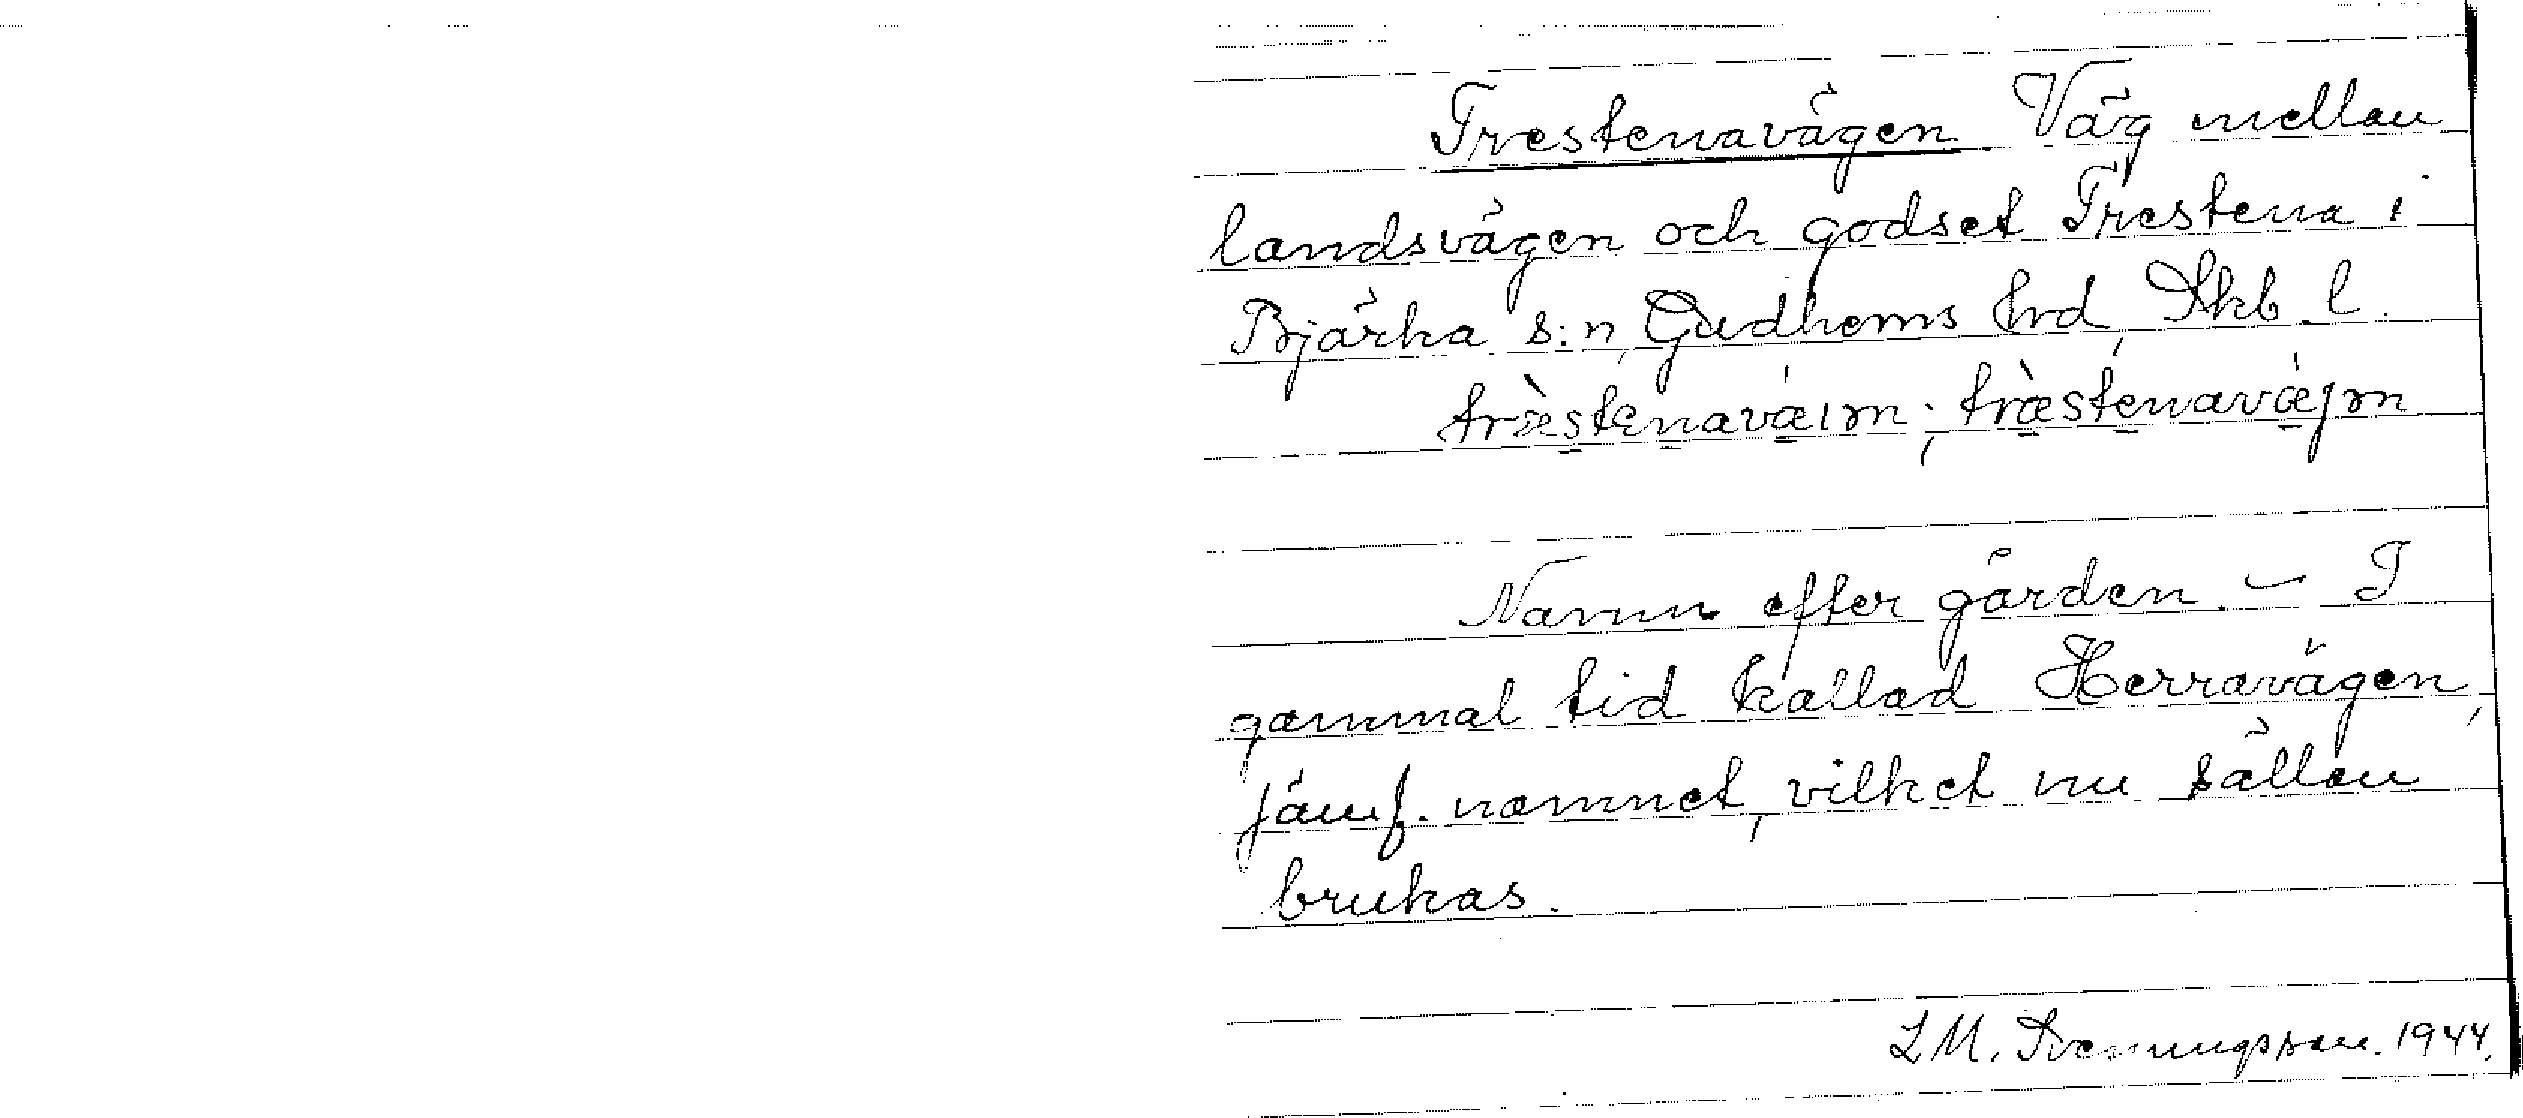 Trestenavägen Väg mellan
landsvägen och godset Trestena i
Bjärka s:n, Gudhems hrd, Skb l.
træ̀stenavæ̀ıən; træ̀stenavæ̀jən
Namn efter gården. – I
gammal tid kallad Herravägen,
jämf. namnet, vilket nu sällan
brukas.
L M. Svenungsson. 1944.